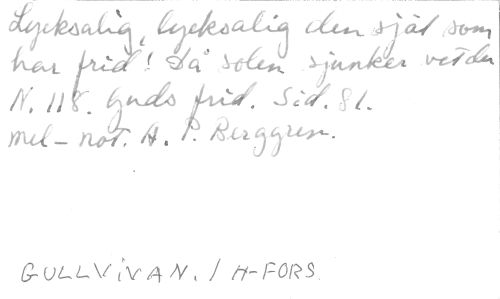 Lycksalig, lycksalig den själ som
har frid! Då solen sjunker vet du
N. 118. Guds frid. Sid. 81.
mel-not. A. P. Berggren.
GULLVIVAN. / H-FORS.